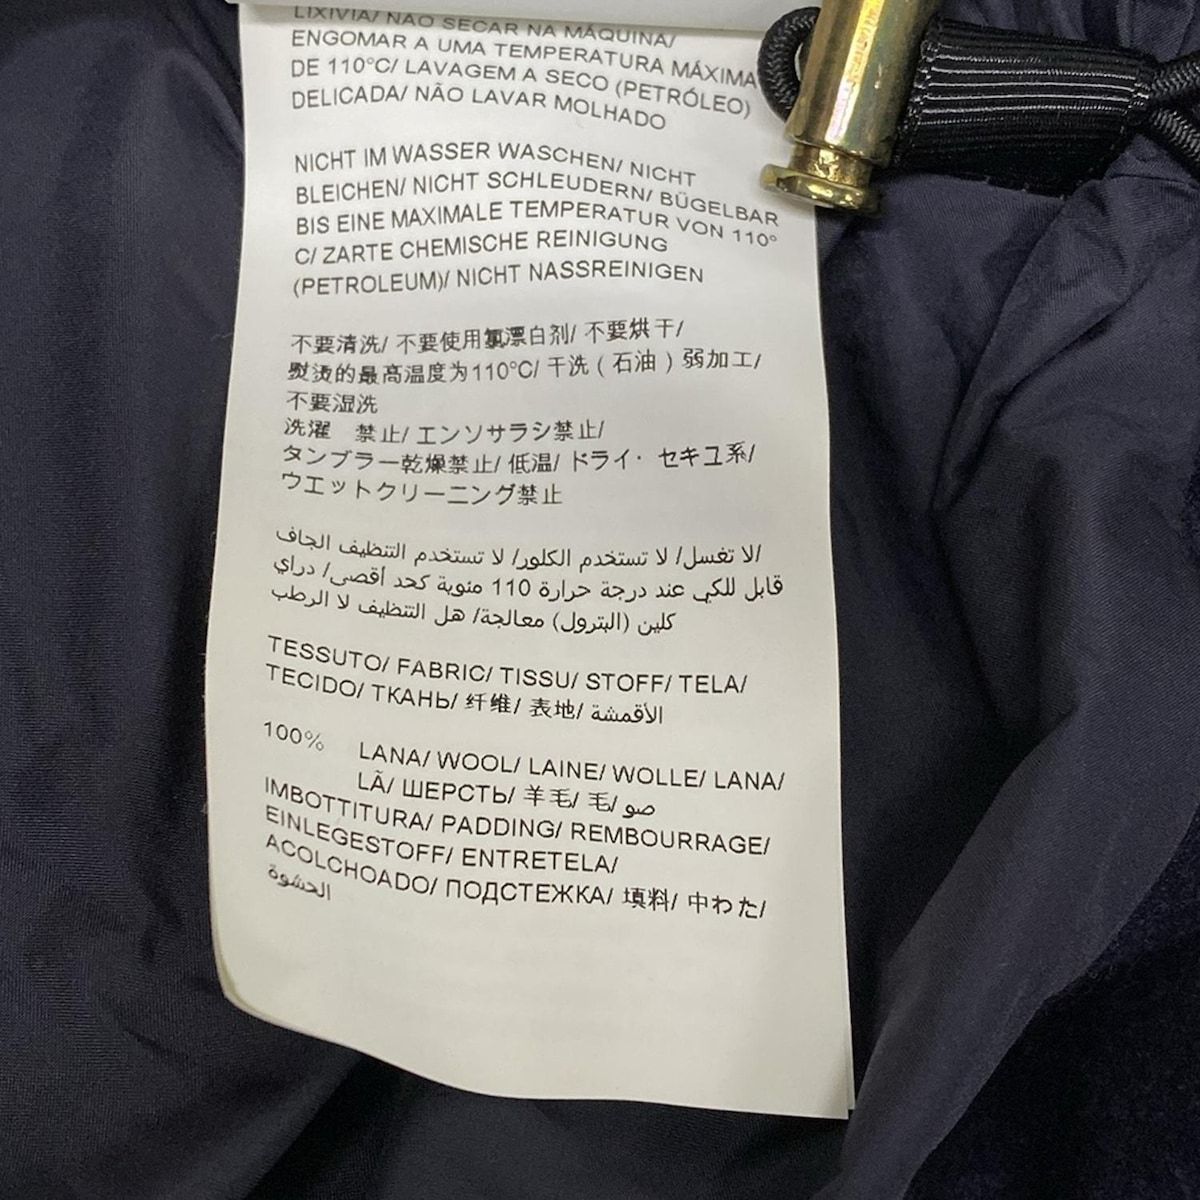 LIXÍVIA/ NÃO SECAR NA MÁQUINA/
ENGOMAR A UMA TEMPERATURA MÁXIMA
DE 110°C/ LAVAGEM A SECO (PETRÓLEO)
DELICADA/ NÃO LAVAR MOLHADO
NICHT IM WASSER WASCHEN/ NICHT
BLEICHEN/ NICHT SCHLEUDERN/ BÜGELBAR
BIS EINE MAXIMALE TEMPERATUR VON 110°
C/ ZARTE CHEMISCHE REINIGUNG
(PETROLEUM)/ NICHT NASSREINIGEN
不要清洗/ 不要使用氯漂白剂/ 不要烘干/
熨烫的最高温度为110°C/ 干洗 ( 石油 ) 弱加工/
不要湿洗
洗濯　禁止/ エンソサラシ禁止/
タンブラー乾燥禁止/ 低温/ ドライ・セキユ系/
ウエットクリーニング禁止
لا تغسل/ لا تستخدم الكلور/ لا تستخدم التنظيف الجاف/
قابل للكي عند درجة حرارة 110 مئوية كحد أقصى/ دراي
كلين (البترول) معالجة/ هل التنظيف لا الرطب
TESSUTO/ FABRIC/ TISSU/ STOFF/ TELA/
TECIDO/ ТКАНЬ/ 纤维/ 表地/ الأقمشة
100% LANA/ WOOL/ LAINE/ WOLLE/ LANA/
LÃ/ ШЕРСТЬ/ 羊毛/ 毛/ صو
IMBOTTITURA/ PADDING/ REMBOURRAGE/
EINLEGESTOFF/ ENTRETELA/
ACOLCHOADO/ ПОДСТЕЖКА/ 填料/ 中わた/
الحشوة